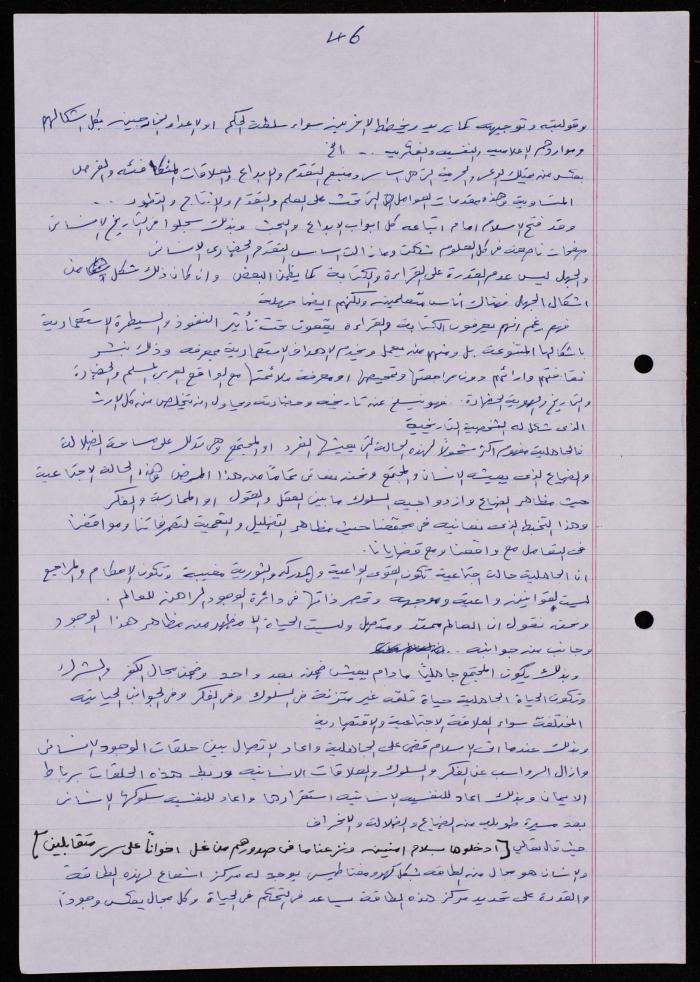 46
وقولبته وتوجيهه كما يريد ويخطط الآخرين سواء سلطة الحكم او الاعداء الخارجيين بكل اشكالهم
ومواردهم الاعلامية والنفسية والفكرية .. الخ
بعكس من يمتلك الوعي والحرية التي هي اساس ومنبع التقدم والابداع والعلاقات المتكافئة والفرص
المتساوية وهذه مقدمات العوامل التي تحث على العلم والتقدم والانتاج والتطور ..
وقد فتح الاسلام امام اتباعه كل ابواب الابداع والبحث وبذلك سجلوا في التاريخ الانساني
صفحات ناصعة في كل العلوم شكلت ومازالت اساس التقدم الحضاري الانساني
والجهل ليس عدم القدرة على القراءة والكتابة كما يظن البعض وان كان ذلك شكل من
اشكال الجهل فهناك أناس متعلمين ولكنهم ايضا جهلة
فهم رغم انهم يعرفون الكتابة والقراءة يقعون تحت تأثير النفوذ والسيطرة الاستعمارية
باشكالها المتنوعة بل ومنهم من يعمل ويخدم الاهداف الاستعمارية بمعرفة وذلك بنشر
ثقافتهم وارائهم دون مراجعتها وتمحيصها او معرفة ملائمتها مع الواقع العربي المسلم والحضارة
والتاريخ والهوية الحضارية . فهو ينسلخ عن تاريخه وحضارته ويحاول ان يتخلص من كل الارث
الذي شكل له شخصيته التاريخية
فالجاهلية مفهوم اكثر شمولاً لهذه الحالة التي يعيشها الفرد او المجتمع وهي تدل على مساحة الضلالة
والضياع الذي يعيشه الانسان والمجتمع ونحن نعاني تماما من هذا المرض وهذه الحالة الاجتماعية
حيث مظاهر الضياع وازدواجية السلوك ما بين العقل والقول او الممارسة والفكر
وهذا التخبط الذي نعانيه في مجتمعنا حيث مظاهر التضليل والتعمية لتصرفاتنا ومواقفنا
في التعامل مع واقعنا ومع قضايانا .
ان الجاهلية حالة اجتماعية تكون القوى الواعية والمدركة والثورية مغيبة وتكون الاحكام والمراجع
ليست لقوانين واعية وموجهة وتحصر ذاتها في دائرة الوجود الراهن للعالم .
ونحن نقول ان العالم ممتد ومتصل وليست الحياة الا مظهر من مظاهر هذا الوجود
وجانب من جوانبه ..
وبذلك يكون المجتمع جاهلياً مادام يعيش ضمن بعد واحد وضمن مجال الكفر والشرك
وتكون الحياة الجاهلية حياة قلقة غير متزنة في السلوك وفي الفكر وفي الجوانب الحياتية
المختلفة سواء العلاقة الاجتماعية والاقتصادية
وبذلك عندما اتى الاسلام قضى على الجاهلية واعاد الاتصال بين حلقات الوجود الانساني
وازال الرواسب عن الفكر والسلوك والعلاقات الانسانية وربط هذه الحلقات برباط
الايمان وبذلك اعاد للنفسية الانسانية استقرارها واعاد للنفسية سلوكها الانساني
بعد مسيرة طويلة من الضياع والضلالة والانحراف
حيث قال تعالى [ ادخلوها بسلام امنين ونزعنا ما في صدورهم من غل اخواناً على سرر متقابلين ]
والانسان هو مجال من الطاقة بشكل كهرومغناطيسي يوجد له مركز اشعاع لهذه الطاقة
والقدرة على تحديد مركز هذه الطاقة يساعد في التحكم في الحياة وكل مجال يعكس وجوداً